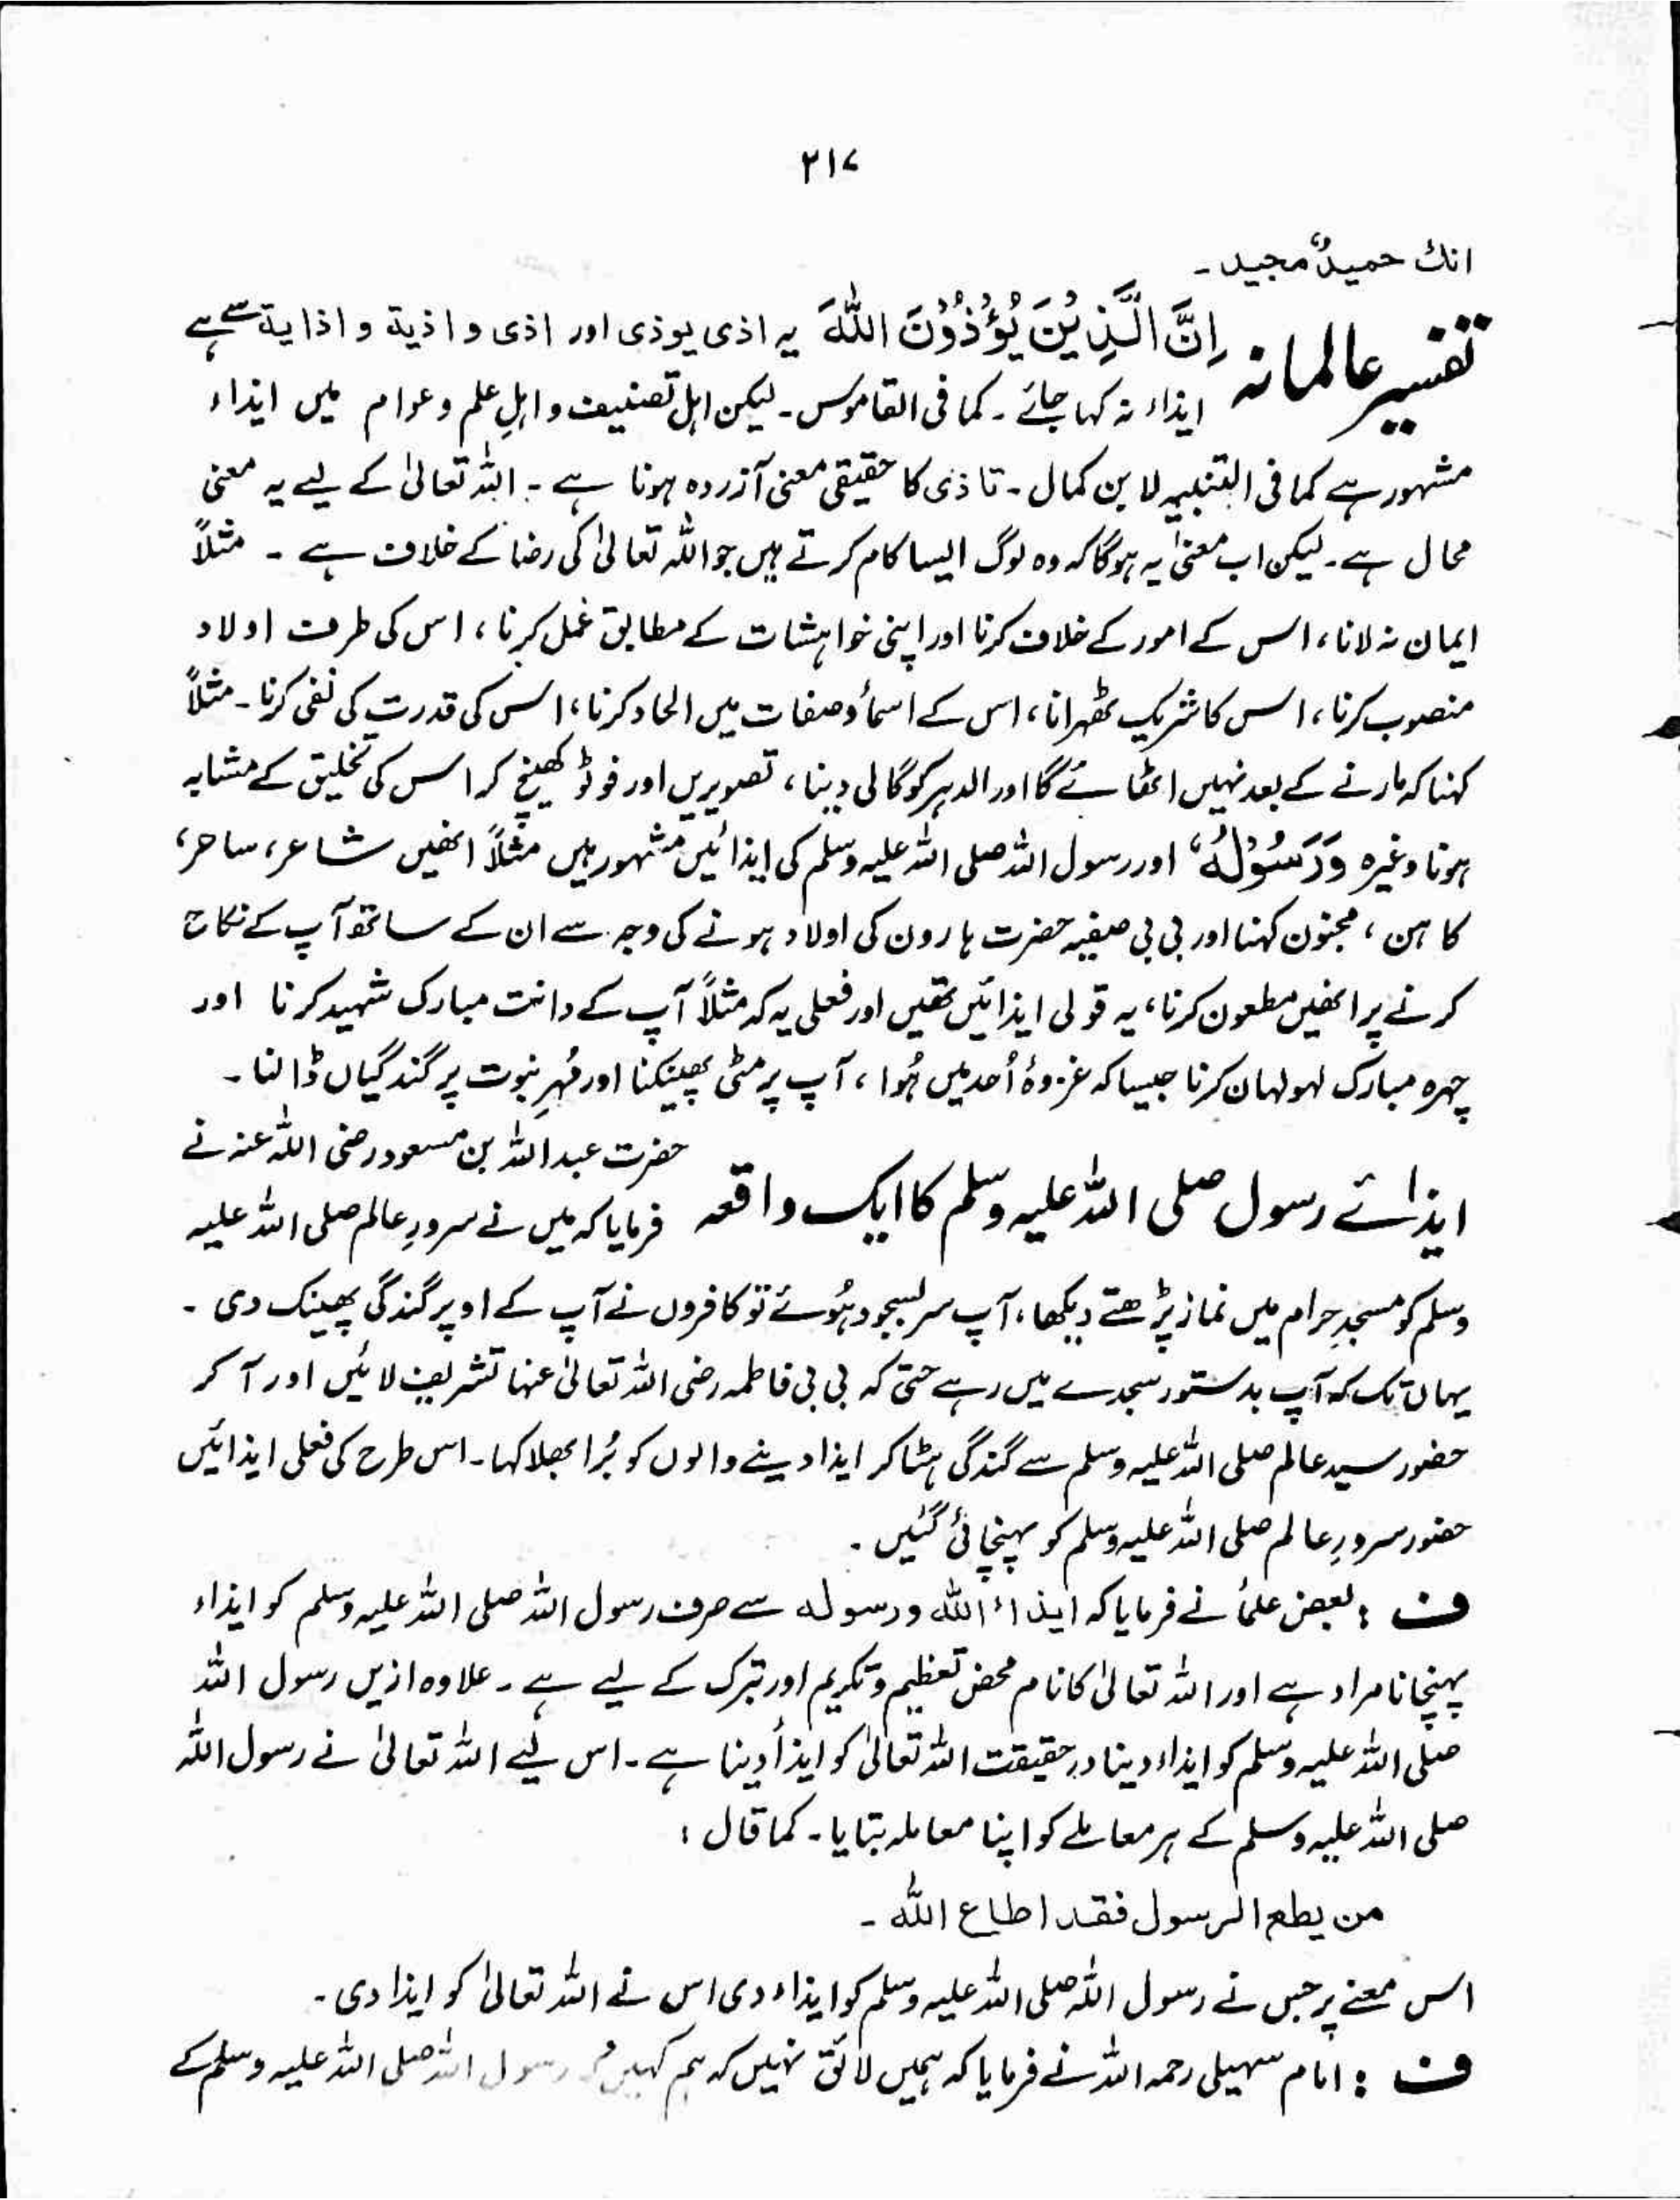 ۲۱۷
انك حمیدٌ مجید۔
تفسیر عالمانہ اِنَّ الَّذِیْنَ یُؤْذُوْنَ اللّٰهَ یہ اذی یوذی اور اذی و اذیة و اذایة سے ہے
ایذاء نہ کہا جائے۔ کما فی القاموس۔ لیکن اہل تصنیف و اہلِ علم و عوام میں ایذاء
مشہور ہے کما فی التنبیہ لابن کمال۔ تاذی کا حقیقی معنی آزردہ ہونا ہے۔ اللہ تعالیٰ کے لیے یہ معنی
محال ہے۔ لیکن اب معنیٰ یہ ہوگا کہ وہ لوگ ایسا کام کرتے ہیں جو اللہ تعالیٰ کی رضا کے خلاف ہے۔ مثلاً
ایمان نہ لانا، اس کے امور کے خلاف کرنا اور اپنی خواہشات کے مطابق عمل کرنا، اس کی طرف اولاد
منصوب کرنا، اس کا شریک ٹھہرانا، اس کے اسمأ و صفات میں الحاد کرنا، اس کی قدرت کی نفی کرنا۔ مثلاً
کہنا کہ مارنے کے بعد نہیں اٹھائے گا اور الدہر کو گالی دینا، تصویریں اور فوٹو کھینچ کر اس کی تخلیق کے مشابہ
ہونا وغیرہ وَرَسُوْلُهٗ اور رسول اللہ صلی اللہ علیہ وسلم کی ایذائیں مشہور ہیں مثلاً انھیں شاعر، ساحر،
کاہن، مجنون کہنا اور بی بی صفیہ حضرت ہارون کی اولاد ہونے کی وجہ سے ان کے ساتھ آپ کے نکاح
کرنے پر انھیں مطعون کرنا، یہ قولی ایذائیں تھیں اور فعلی یہ کہ مثلاً آپ کے دانت مبارک شہید کرنا اور
چہرہ مبارک لہولہان کرنا جیسا کہ غزوۂ اُحد میں ہُوا، آپ پر مٹی پھینکنا اور مُہرِ نبوت پر گندگیاں ڈالنا۔
ایذائے رسول صلی اللہ علیہ وسلم کا ایک واقعہ حضرت عبداللہ بن مسعود رضی اللہ عنہ نے
فرمایا کہ میں نے سرورِ عالم صلی اللہ علیہ
وسلم کو مسجدِ حرام میں نماز پڑھتے دیکھا، آپ سر بسجود ہُوئے تو کافروں نے آپ کے اوپر گندگی پھینک دی۔
یہاں تک کہ آپ بدستور سجدے میں رہے حتیٰ کہ بی بی فاطمہ رضی اللہ تعالیٰ عنہا تشریف لائیں اور آ کر
حضور سید عالم صلی اللہ علیہ وسلم سے گندگی ہٹا کر ایذا دینے والوں کو بُرا بھلا کہا۔ اس طرح کی فعلی ایذائیں
حضور سرورِ عالم صلی اللہ علیہ وسلم کو پہنچائی گئیں۔
ف : بعض علمأ نے فرمایا کہ ایذاء اللّٰه ورسوله سے صرف رسول اللہ صلی اللہ علیہ وسلم کو ایذاء
پہنچانا مراد ہے اور اللہ تعالیٰ کا نام محض تعظیم و تکریم اور تبرک کے لیے ہے۔ علاوہ ازیں رسول اللہ
صلی اللہ علیہ وسلم کو ایذاء دینا در حقیقت اللہ تعالیٰ کو ایذأ دینا ہے۔ اس لیے اللہ تعالیٰ نے رسول اللہ
صلی اللہ علیہ وسلم کے ہر معاملے کو اپنا معاملہ بتایا۔ کما قال :
من یطع الرسول فقد اطاع اللّٰه۔
اس معنے پر جس نے رسول اللہ صلی اللہ علیہ وسلم کو ایذاء دی اس نے اللہ تعالیٰ کو ایذا دی۔
ف : امام سہیلی رحمہ اللہ نے فرمایا کہ ہمیں لائق نہیں کہ ہم کہیں کہ رسول اللہ صلی اللہ علیہ وسلم کے